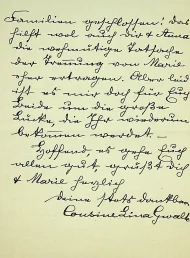 Familien geschlossen! Das
hilft wol auch Dir & Anna
die wehmütige Tatsache
der Trennung von Marie
eher ertragen. Aber leid
ist es mir doch für Euch
Beide um die große
Lücke, die Ihr wiederum
bekommen werdet. —
Hoffend, es gehe Euch
allen gut, grüßt Dich
& Marie herzlich
Deine stets dankbare
Cousine Lina Gwalter